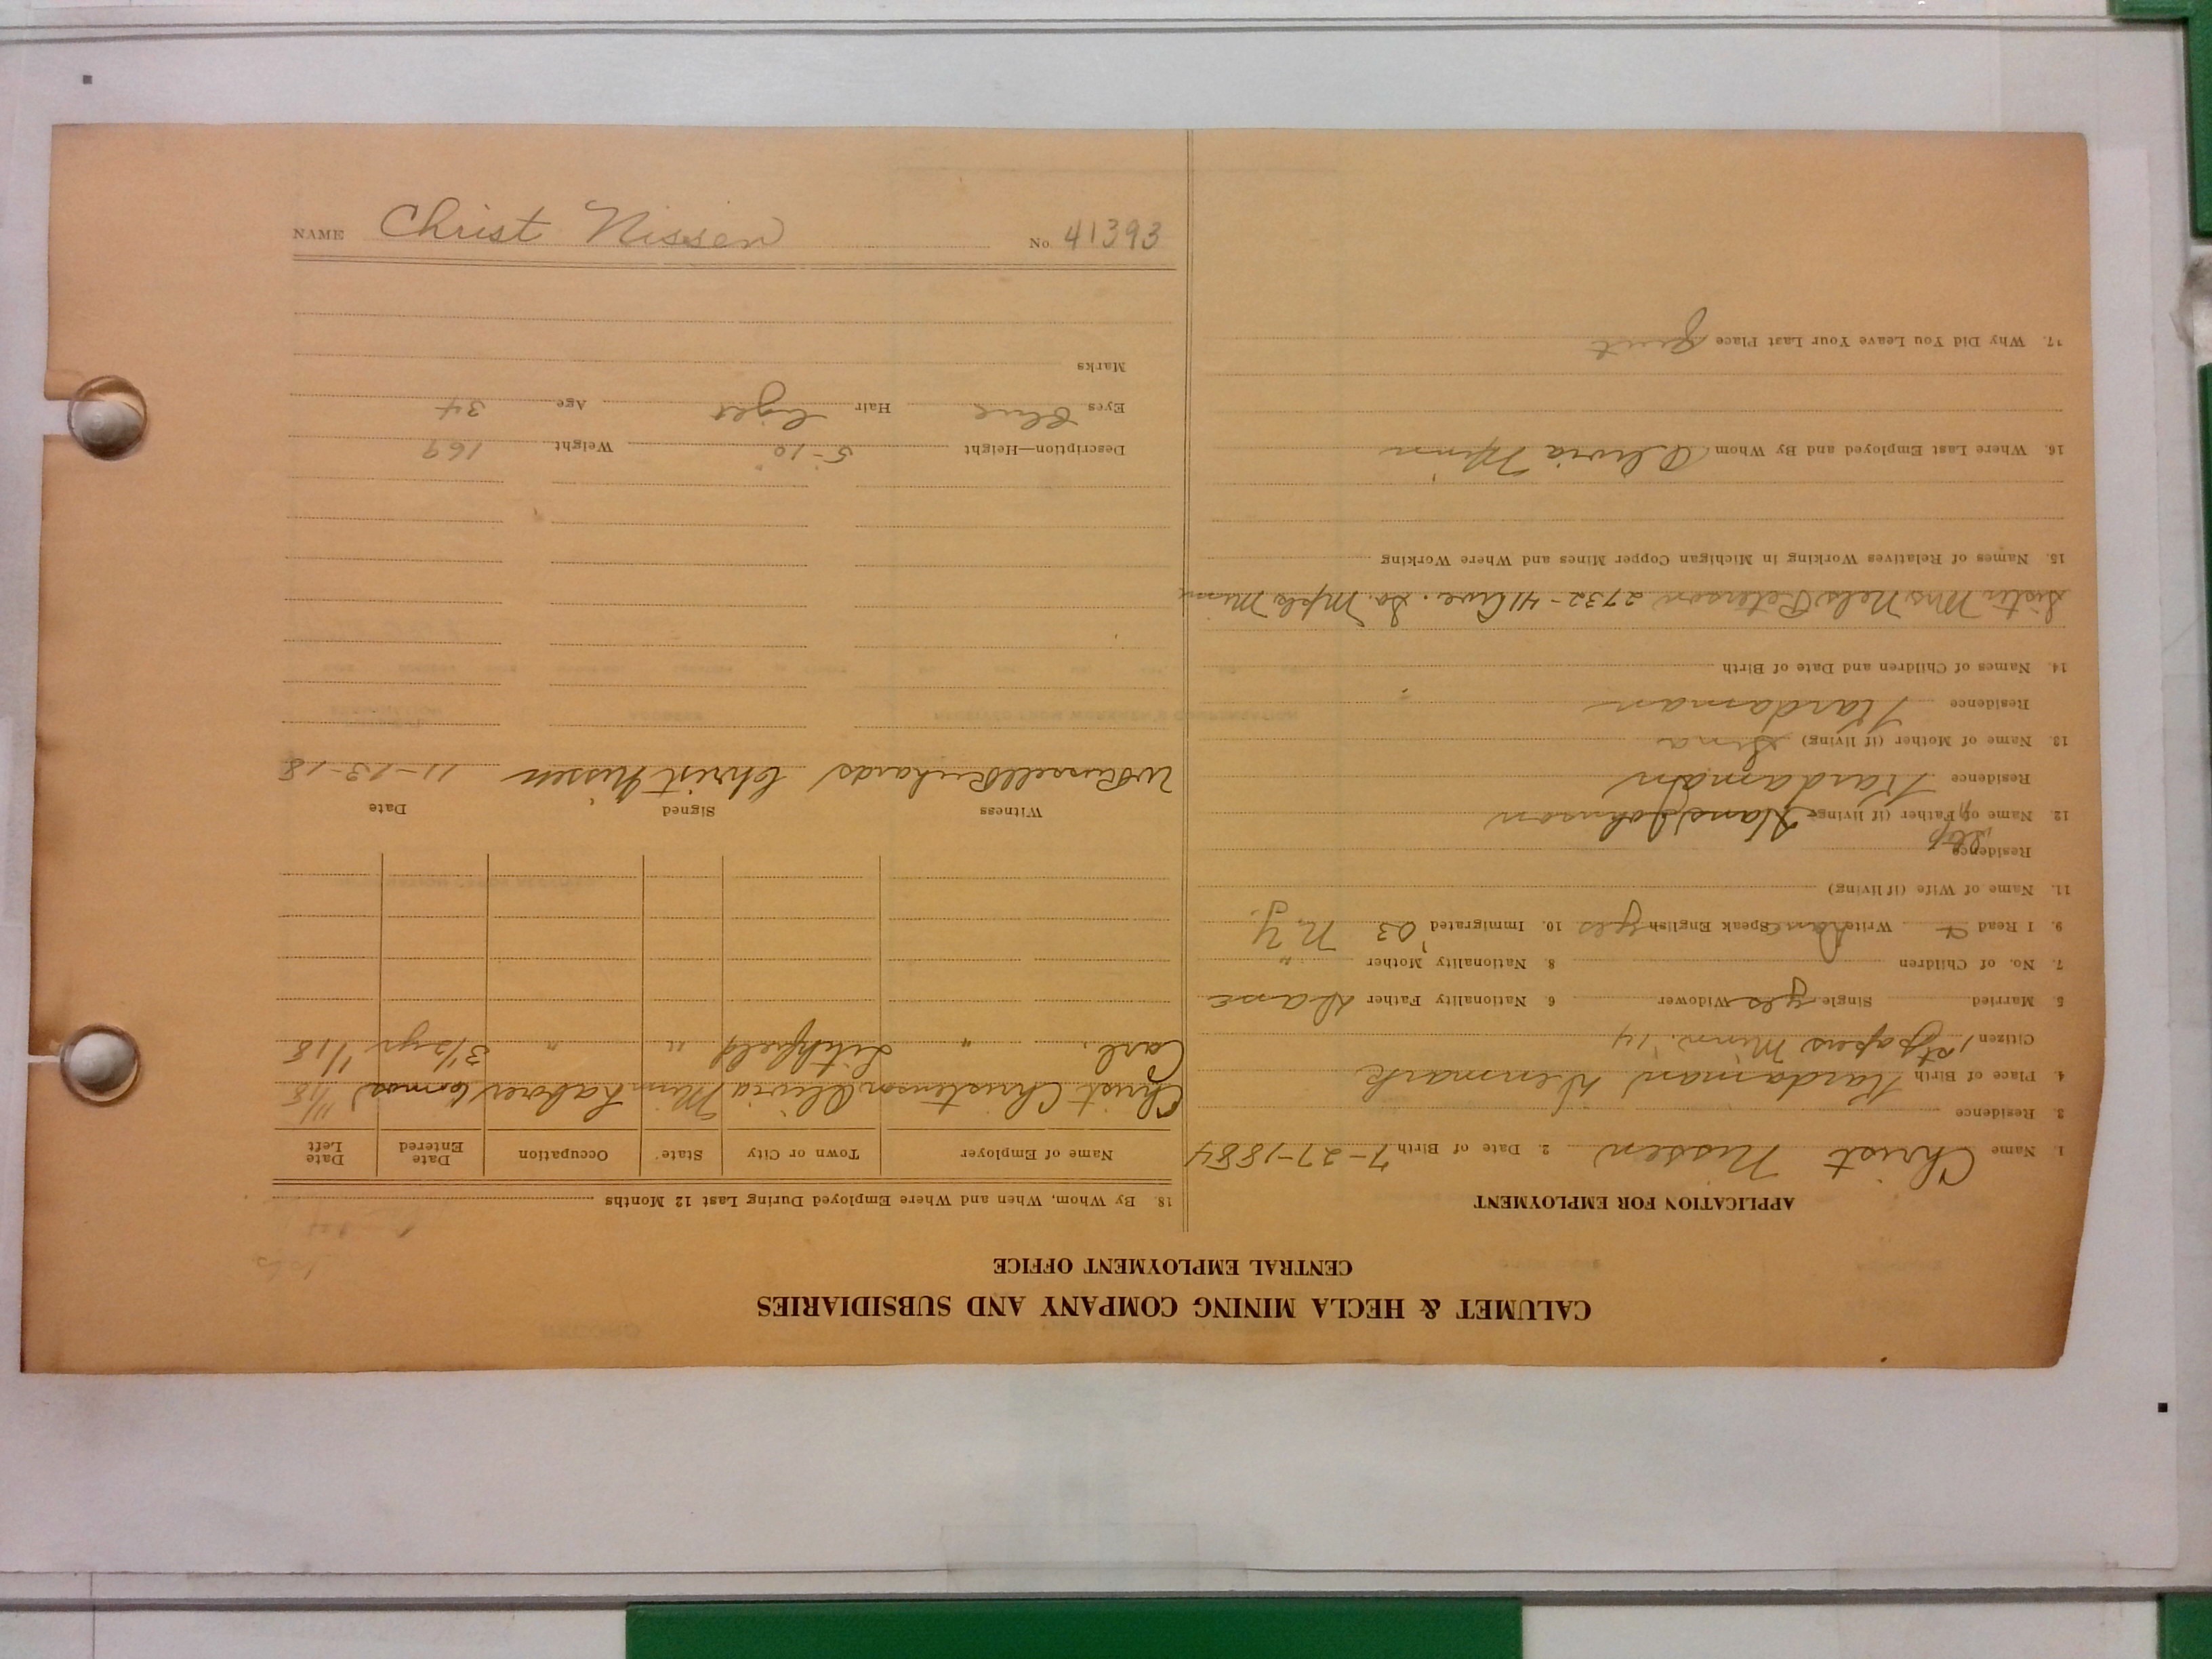 CALUMET & HECLA MINING COMPANY AND SUBSIDIARIES
CENTRAL EMPLOYMENT OFFICE
APPLICATION FOR EMPLOYMENT
1. Name Christ Nissen 2. Date of Birth 7-27-1884
3. Residence
4. Place of Birth Kardaman Denmark
Citizen 1st papers Minn. '14
5. Married Single yes Widower 6. Nationality Father Dane
7. No. of Children 8. Nationality Mother "
9. I Read & Write Dane Speak English yes 10. Immigrated '03 N.Y.
11. Name of Wife (if living)
Residence
Step
12. Name of Father (if living) Hans Johnson
Residence Kardaman
13. Name of Mother (if living) Sina
Residence Kardaman
14. Names of Children and Date of Birth
Sister Mrs Nels Peterson 2732-41 Ave. So. Mpls Minn
15. Names of Relatives Working in Michigan Copper Mines and Where Working
16. Where Last Employed and By Whom Olivia Minn
17. Why Did You Leave Your Last Place Quit
18. By Whom, When and Where Employed During Last 12 Months
Name of Employer Town or City State Occupation Date Entered Date Left
Christ Christenson Olivia Minn Laborer 6 mos 11/18
Carl " Litchfield " " 3 1/2 yr 1/18
Witness Signed Date
W Russell Richards Christ Nissen 11-13-18
Description—Height 5-10 Weight 169
Eyes Blue Hair Light Age 34
Marks
NAME Christ Nissen No. 41393